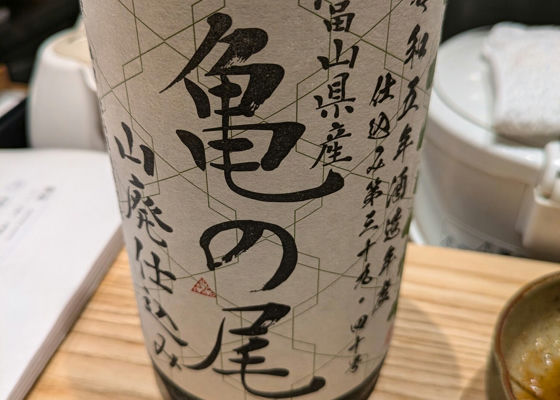 令和五年酒造年度
仕込み第三十九・四十号
富山県産
亀の尾
山廃仕込み